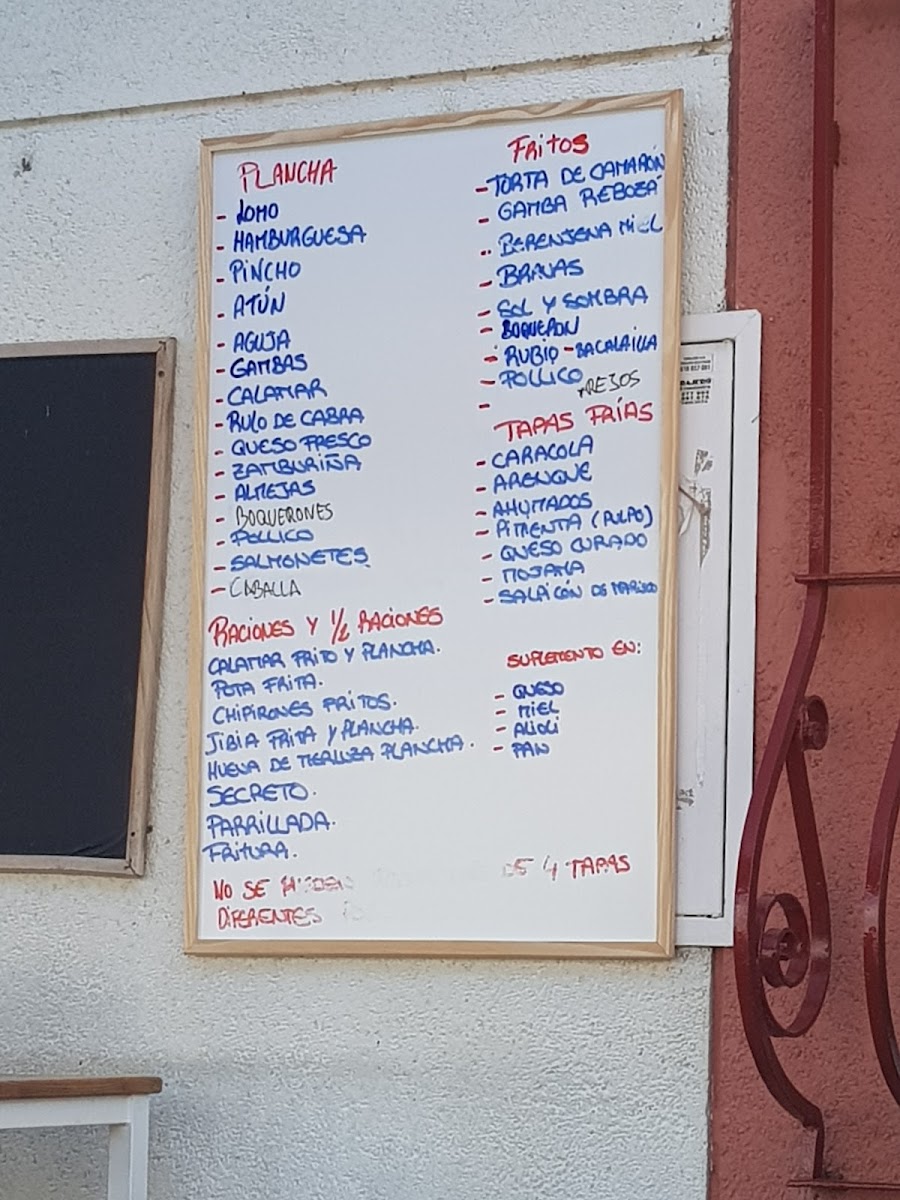 PLANCHA
- LOMO
- HAMBURGUESA
- PINCHO
- ATÚN
- AGUJA
- GAMBAS
- CALAMAR
- RULO DE CABRA
- QUESO FRESCO
- ZAMBURIÑA
- ALMEJAS
- BOQUERONES
- POLLICO
- SALMONETES
- CABALLA
RACIONES Y 1/2 RACIONES
CALAMAR FRITO Y PLANCHA.
POTA FRITA.
CHIPIRONES FRITOS.
JIBIA FRITA Y PLANCHA.
HUEVA DE MERLUZA PLANCHA.
SECRETO.
PARRILLADA.
FRITURA.
FRITOS
- TORTA DE CAMARÓN
- GAMBA REBOZÁ
- BERENJENA MIEL
- BRAVAS
- SOL Y SOMBRA
- BOQUERÓN
- RUBIO - BACALAILLA
- POLLICO
-
TAPAS FRÍAS
- CARACOLA
- ARENQUE
- AHUMADOS
- PIMENTA (PULPO)
- QUESO CURADO
- MOJAMA
- SALPICÓN DE MARISCO
SUPLEMENTO EN:
- QUESO
- MIEL
- ALIOLI
- PAN
NO SE DE 4 TAPAS
DIFERENTES